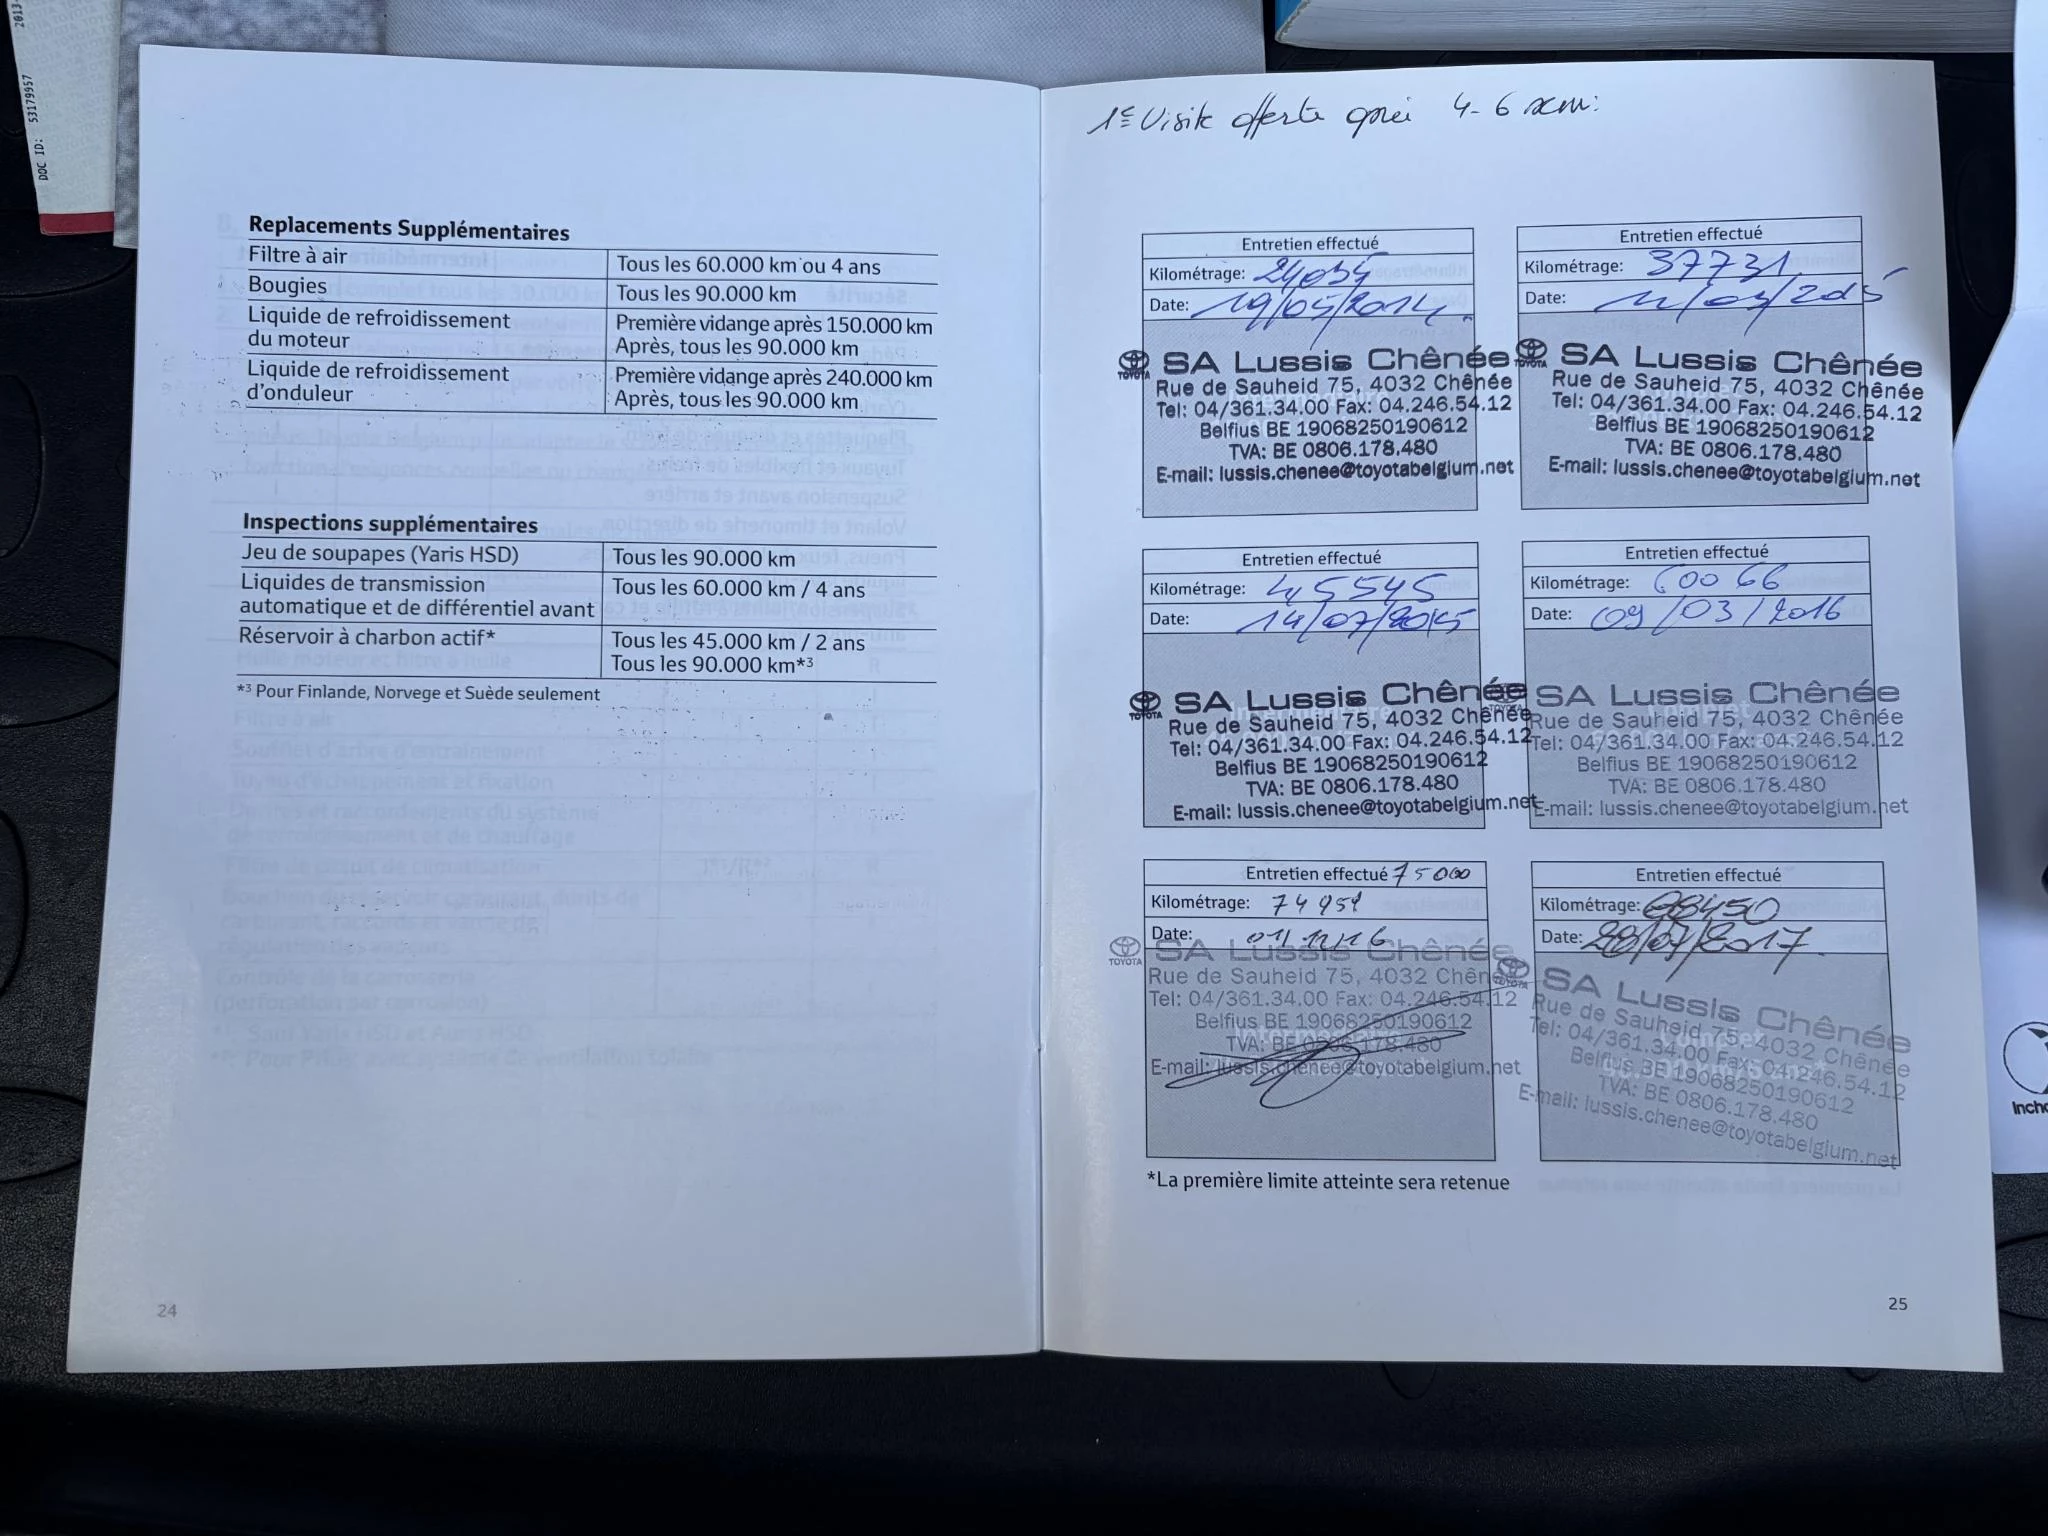 2013-
DOC ID: 53179957
Replacements Supplémentaires
Filtre à air Tous les 60.000 km ou 4 ans
Bougies Tous les 90.000 km
Liquide de refroidissement du moteur Première vidange après 150.000 km
Après, tous les 90.000 km
Liquide de refroidissement d'onduleur Première vidange après 240.000 km
Après, tous les 90.000 km
Inspections supplémentaires
Jeu de soupapes (Yaris HSD) Tous les 90.000 km
Liquides de transmission automatique et de différentiel avant Tous les 60.000 km / 4 ans
Réservoir à charbon actif* Tous les 45.000 km / 2 ans
Tous les 90.000 km*3
*3 Pour Finlande, Norvege et Suède seulement
24
1e Visite offerte 4-6
Entretien effectué
Kilométrage: 24034
Date: 19/05/2014
TOYOTA
SA Lussis Chênée
Rue de Sauheid 75, 4032 Chênée
Tel: 04/361.34.00 Fax: 04.246.54.12
Belfius BE 19068250190612
TVA: BE 0806.178.480
E-mail: lussis.chenee@toyotabelgium.net
Entretien effectué
Kilométrage: 37731
Date:
TOYOTA
SA Lussis Chênée
Rue de Sauheid 75, 4032 Chênée
Tel: 04/361.34.00 Fax: 04.246.54.12
Belfius BE 19068250190612
TVA: BE 0806.178.480
E-mail: lussis.chenee@toyotabelgium.net
Entretien effectué
Kilométrage: 45545
Date: 14/07/2015
TOYOTA
SA Lussis Chênée
Rue de Sauheid 75, 4032 Chênée
Tel: 04/361.34.00 Fax: 04.246.54.12
Belfius BE 19068250190612
TVA: BE 0806.178.480
E-mail: lussis.chenee@toyotabelgium.net
Entretien effectué
Kilométrage: 60066
Date: 09/03/2016
TOYOTA
SA Lussis Chênée
Rue de Sauheid 75, 4032 Chênée
Tel: 04/361.34.00 Fax: 04.246.54.12
Belfius BE 19068250190612
TVA: BE 0806.178.480
E-mail: lussis.chenee@toyotabelgium.net
Entretien effectué 75000
Kilométrage: 74959
Date: 01/12/16
TOYOTA
SA Lussis Chênée
Rue de Sauheid 75, 4032 Chênée
Tel: 04/361.34.00 Fax: 04.246.54.12
Belfius BE 19068250190612
TVA: BE 0806.178.480
E-mail: lussis.chenee@toyotabelgium.net
Entretien effectué
Kilométrage: 88450
Date: 28/07/2017
TOYOTA
SA Lussis Chênée
Rue de Sauheid 75, 4032 Chênée
Tel: 04/361.34.00 Fax: 04.246.54.12
Belfius BE 19068250190612
TVA: BE 0806.178.480
E-mail: lussis.chenee@toyotabelgium.net
*La première limite atteinte sera retenue
25
Inch